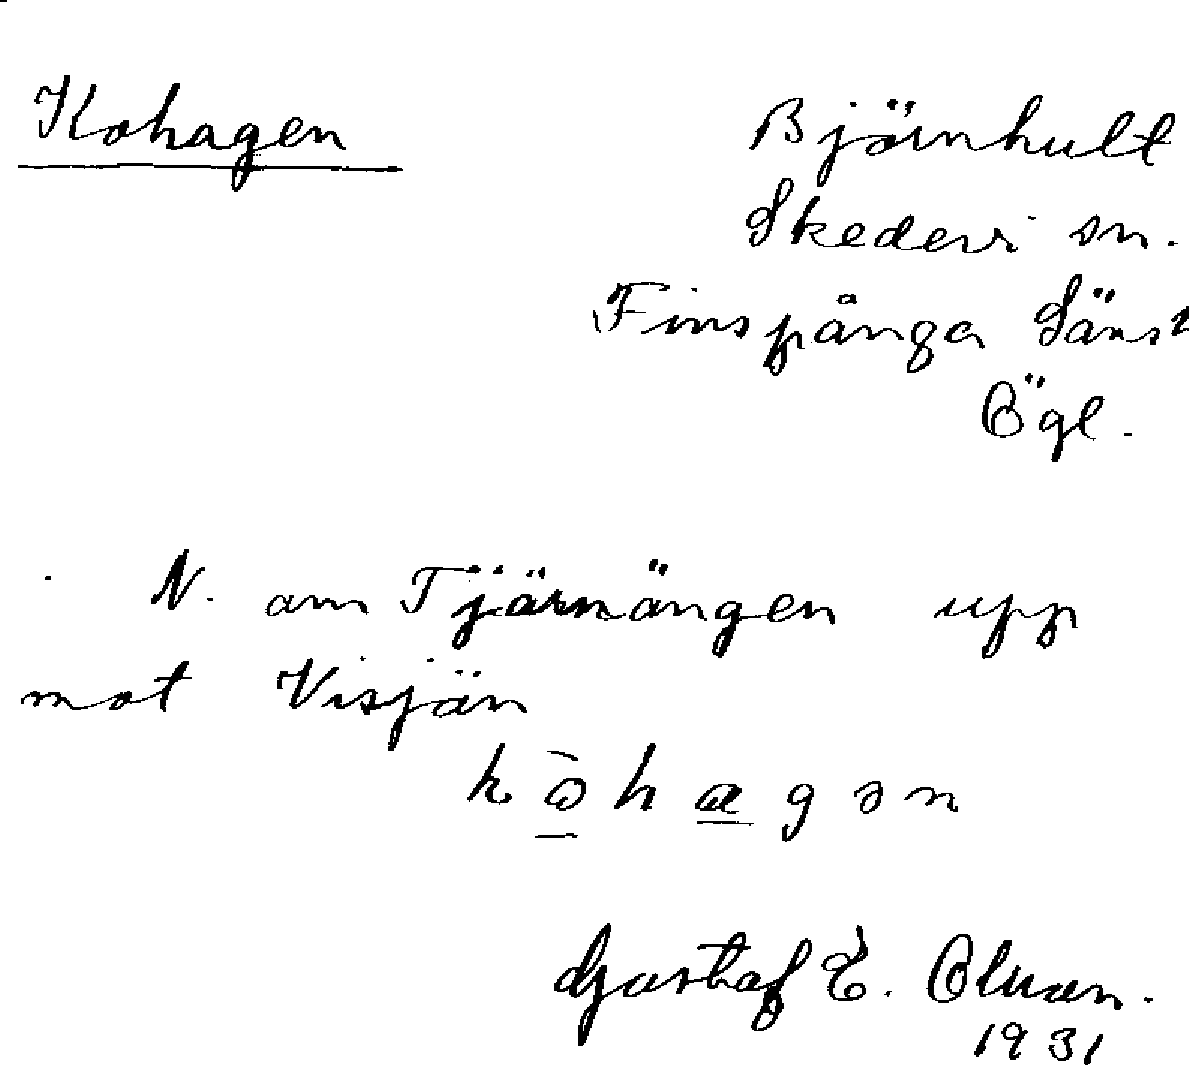 Kohagen
Björnhult
Skedevi sn.
Finspånga Läns h
Ögl.
N. om Tjärnängen upp
mot Visjön
kòhagən
Gustaf E. Olson.
1931